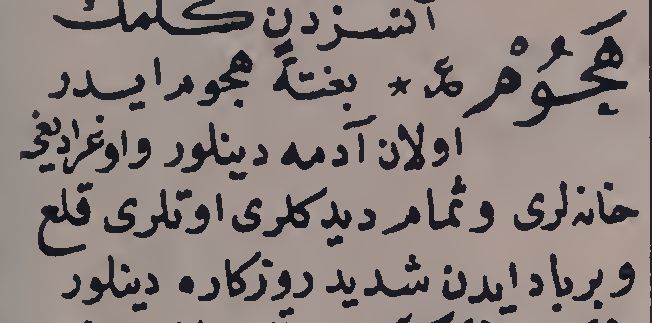 آنسزدن كلمك
هَجُومْ ع * بغتةً هجوم ايدر
اولان آدمه دينلور واوغراديغى
خانه‌لرى وثمام ديدكلرى اوتلرى قلع
وبرباد ايدن شديد روزكاره دينلور